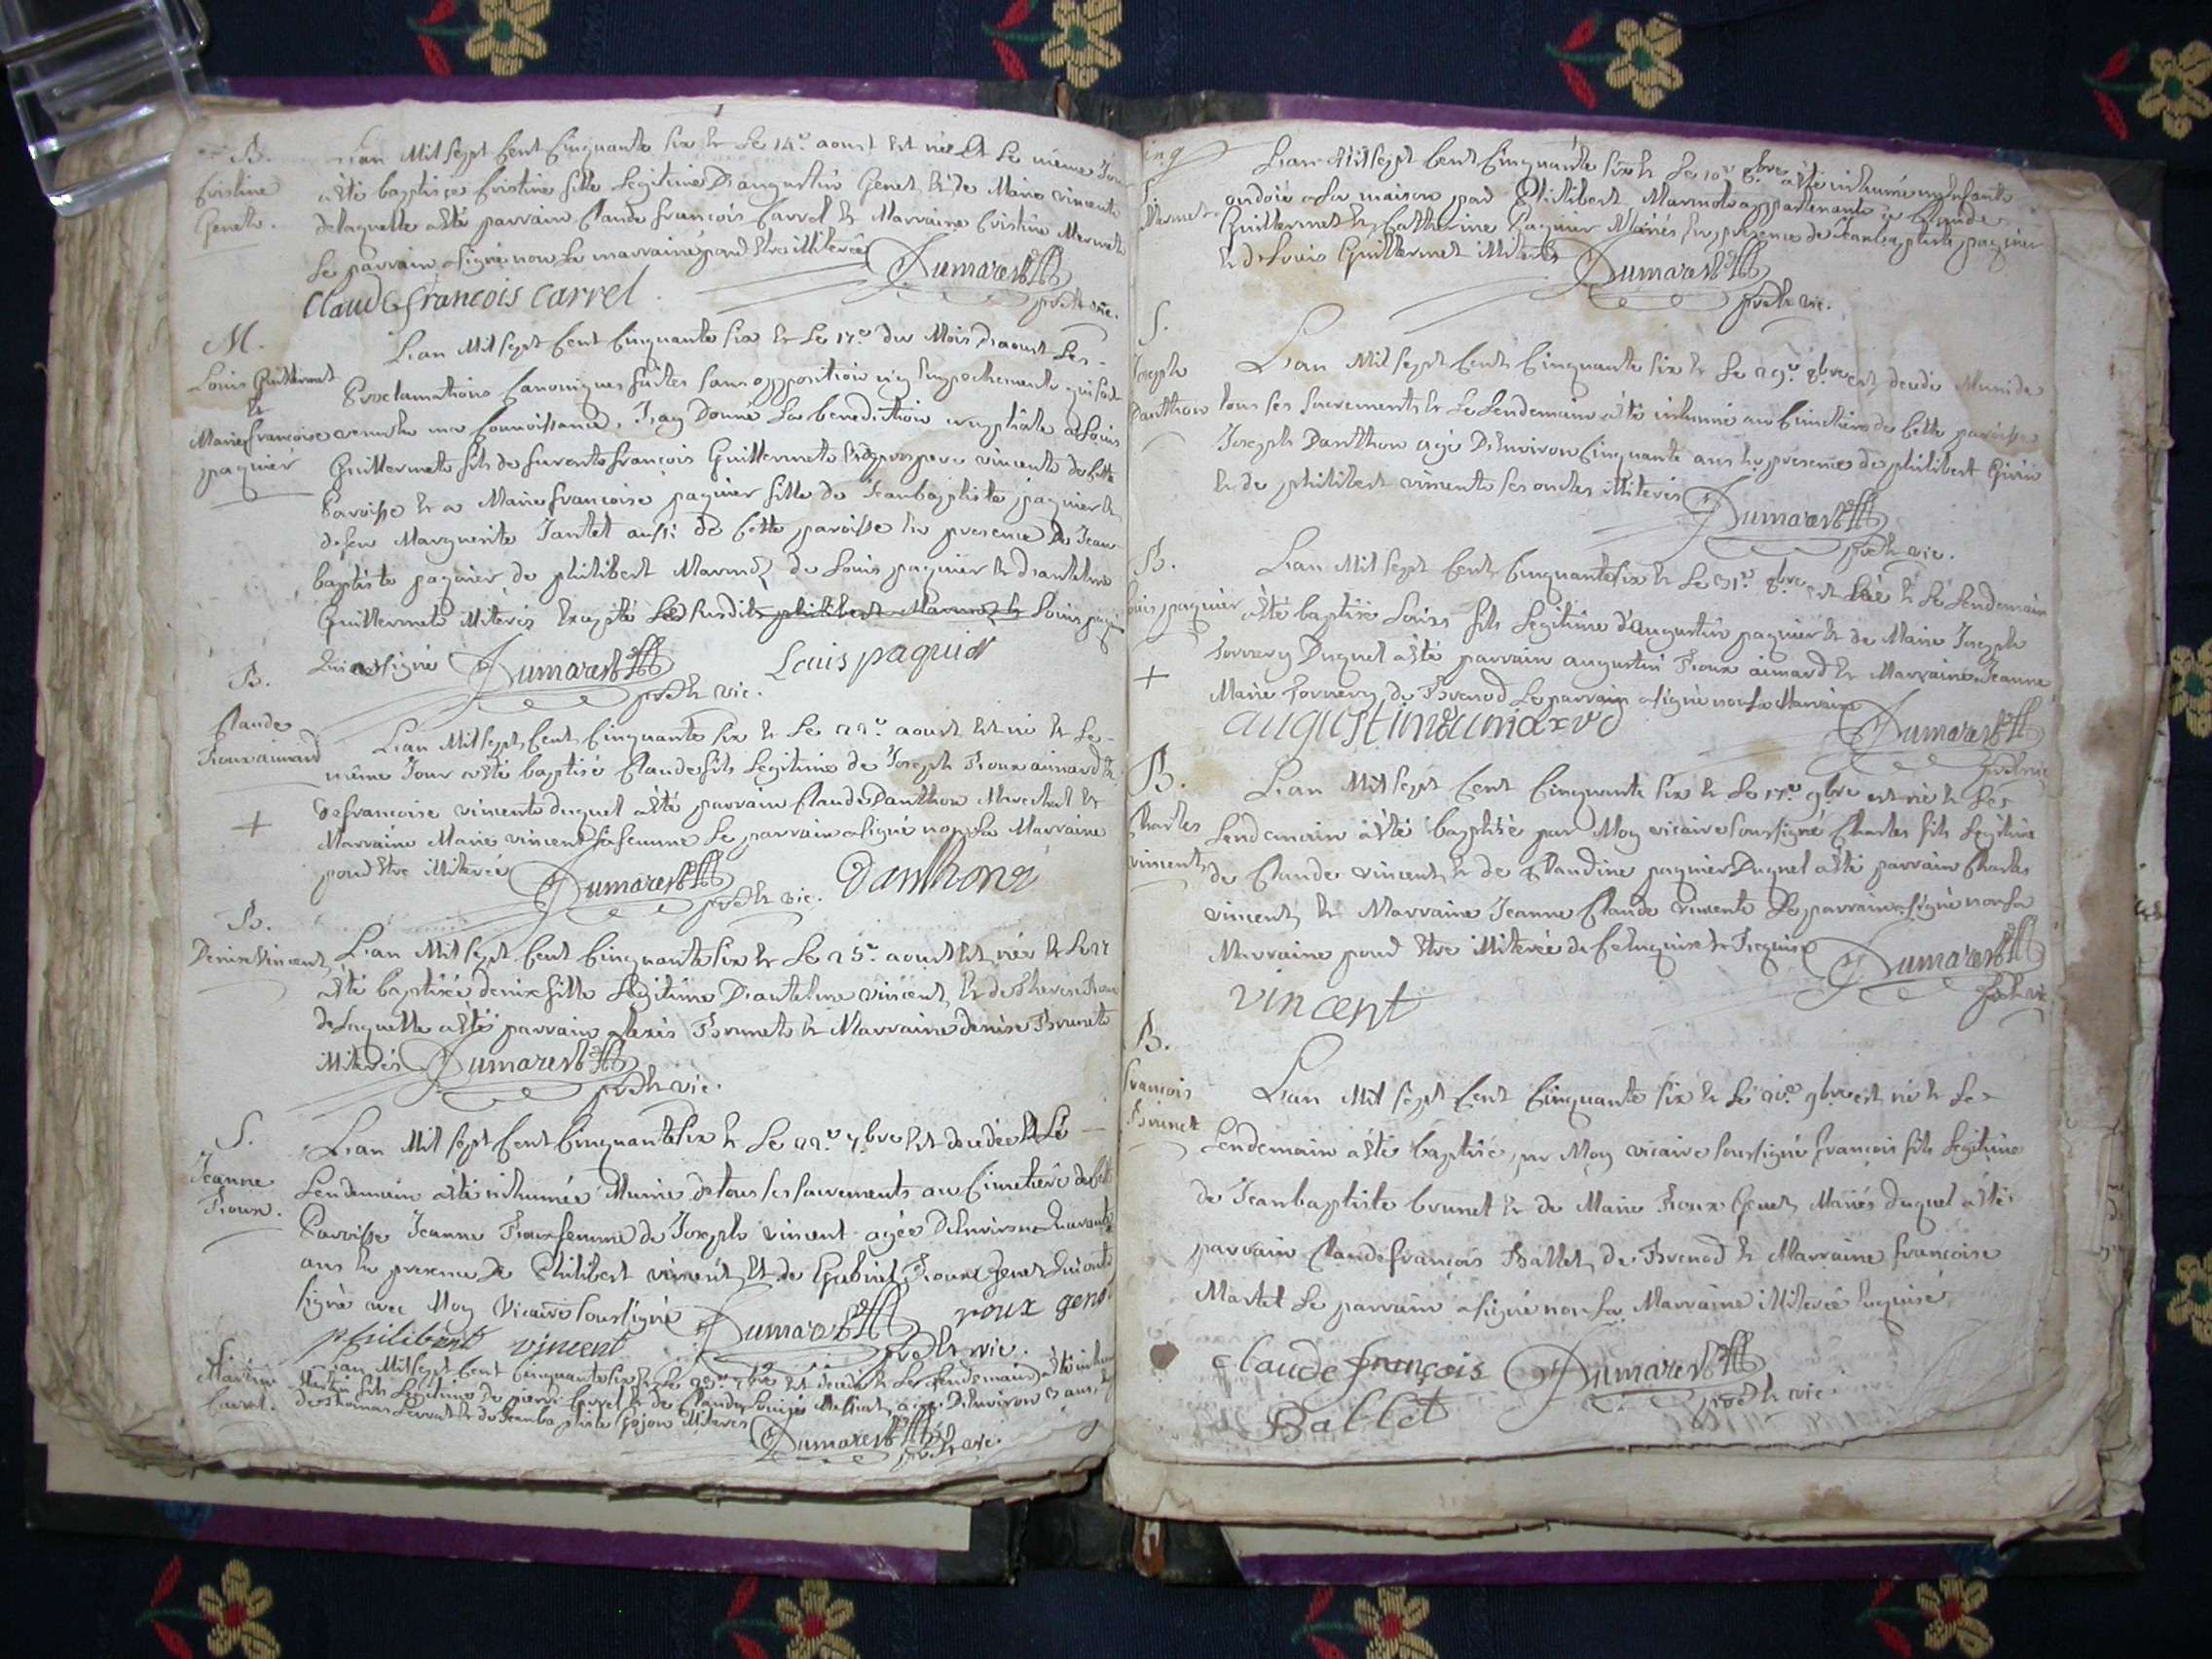 B.
Cristine
Genet.
L'an Mil sept Cent Cinquante six & le 14.e aoust Est née Et le même Jour
a été baptisée Cristine fille legitime D'augustin Genet, & de Marie vincent
de laquelle a été parrain Claude françois Carrel & Marraine Cristine Mermet
le parrain a signé non la marraine pour Etre illiterée Dumarest
Claude francois Carrel
prêtre vic.
M.
Louis Guillermet
&
Marie françoise
paquier
L'an Mil sept Cent Cinquante six & le 17.e du Mois d'aoust les
Proclamations Canoniques faites sans opposition n'y Empechement qui soit
venu a ma Connoissance, J'ay Donné la benediction nuptiale a Louis
Guillermet fils de françois Guillermet & de prospere vincent de cette
Paroisse & a Marie françoise paquier fille de Jean baptiste paquier &
de feu Marguerite Jantet aussi de cette paroisse En presence de Jean
baptiste paquier de philibert Marmoz de Louis paquier & d'antelme
Guillermet illiterés Excepté Les susdits philibert Marmoz & Louis paquier
Qui a signé Dumarest Louis paquier
prêtre vic.
B.
Claude
Roux aimard
+
L'an Mil sept Cent Cinquante six & le 22.e aoust Est né & le
même Jour a été baptisé Claude fils legitime de Joseph Roux aimard &
de françoise vincent duquel a été parrain Claude Danthon Marechal &
Marraine Marie vincent sa femme le parrain a signé non la Marraine
pour Etre illiterée Dumarest Danthon
prêtre vic.
B.
Denise Vincent
L'an Mil sept Cent Cinquante six & le 25.e aoust Est née & le 27
a été baptisée denise fille legitime D'antelme vincent, & de Therese Roux
de laquelle a été parrain alexis Brunet & Marraine denise Brunet
illiterés Dumarest
prêtre vic.
S.
Jeanne
Roux.
L'an Mil sept Cent Cinquante six & le 22.e 7.bre Est decedée Et le
Lendemain a été inhumée Munie de tous ses sacrements au Cimetiere de cette
Paroisse Jeanne Roux femme de Joseph vincent agée D'Environ quarante
ans En presence de Philibert vincent, Et de Gabriel Roux Genet Qui ont
signé avec Moy Vicaire soussigné Dumarest roux genet
philibert vincent prêtre vic.
Martin
Carrel.
L'an Mil sept Cent Cinquante six & le 7.bre Est decedé & le Lendemain a été inhumé
Martin fils legitime de pierre Carrel & de Claudine agé D'Environ ans,
de Thomas & de Jean baptiste illiterés
Dumarest prêtre vic.
L'an Mil sept Cent Cinquante six & le 10.e 8.bre a été inhumé un Enfant
ondoié a la maison par Philibert Marmot appartenant a Claude
Guillermet & Catherine Paquier Mariés, En presence de Jean baptiste paquier
& de Louis Guillermet illiterés Dumarest
prêtre vic.
S.
Joseph
Danthon
L'an Mil sept Cent Cinquante six & le 29.e 8.bre est decedé Muni de
tous ses sacrements & le Lendemain a été inhumé au Cimetiere de Cette paroisse
Joseph Danthon agé D'Environ Cinquante ans En presence de philibert
& de philibert vincent ses oncles illiterés Dumarest
prêtre vic.
B.
Louis paquier
+
L'an Mil sept Cent Cinquante six & le 31.e 8.bre est né & le Lendemain
a été baptisé Louis fils legitime d'augustin paquier & de Marie Joseph
Duquel a été parrain augustin Roux aimard & Marraine Jeanne
Marie de Brenod le parrain a signé non la Marraine
Dumarest
prêtre vic
B.
Charles
vincent
L'an Mil sept Cent Cinquante six & le 17.e 9.bre est né & le
Lendemain a été baptisé par Moy vicaire soussigné Charles fils legitime
de Claude vincent, & de Claudine paquier Duquel a été parrain Charles
vincent, & Marraine Jeanne Claude vincent le parrain a signé non la
Marraine pour Etre illiterée de ce Enquise & Requise Dumarest
vincent prêtre vic.
B.
françois
Brunet
L'an Mil sept Cent Cinquante six & le 9.bre est né & le
Lendemain a été baptisé par Moy vicaire soussigné françois fils legitime
de Jean baptiste brunet & de Marie Roux Genet, Mariés duquel a été
parrain Claude françois Ballet, de Brenod & Marraine françoise
Martel le parrain a signé non la Marraine illiterée Enquise
Claude françois Dumarest
Ballet prêtre vic.